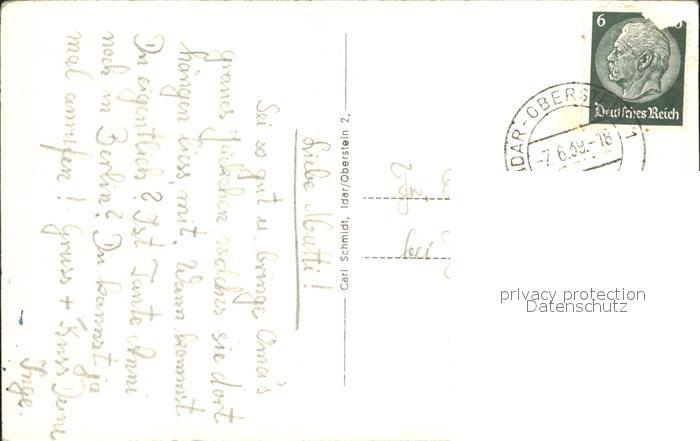 Liebe Mutti!
Sei so gut u. bringe Oma's
graues Jäckchen, welches sie dort
hängen liess, mit. Wann kommst
Du eigentlich? Ist Tante Anni
noch in Berlin? Du kommst ja
mal anrufen! Gruss + Kuss Deine
Inge.
Carl Schmidt, Idar/Oberstein 2,
6
Deutsches Reich
IDAR-OBERST
1
-7.6.39.-18
bei
privacy protection
Datenschutz